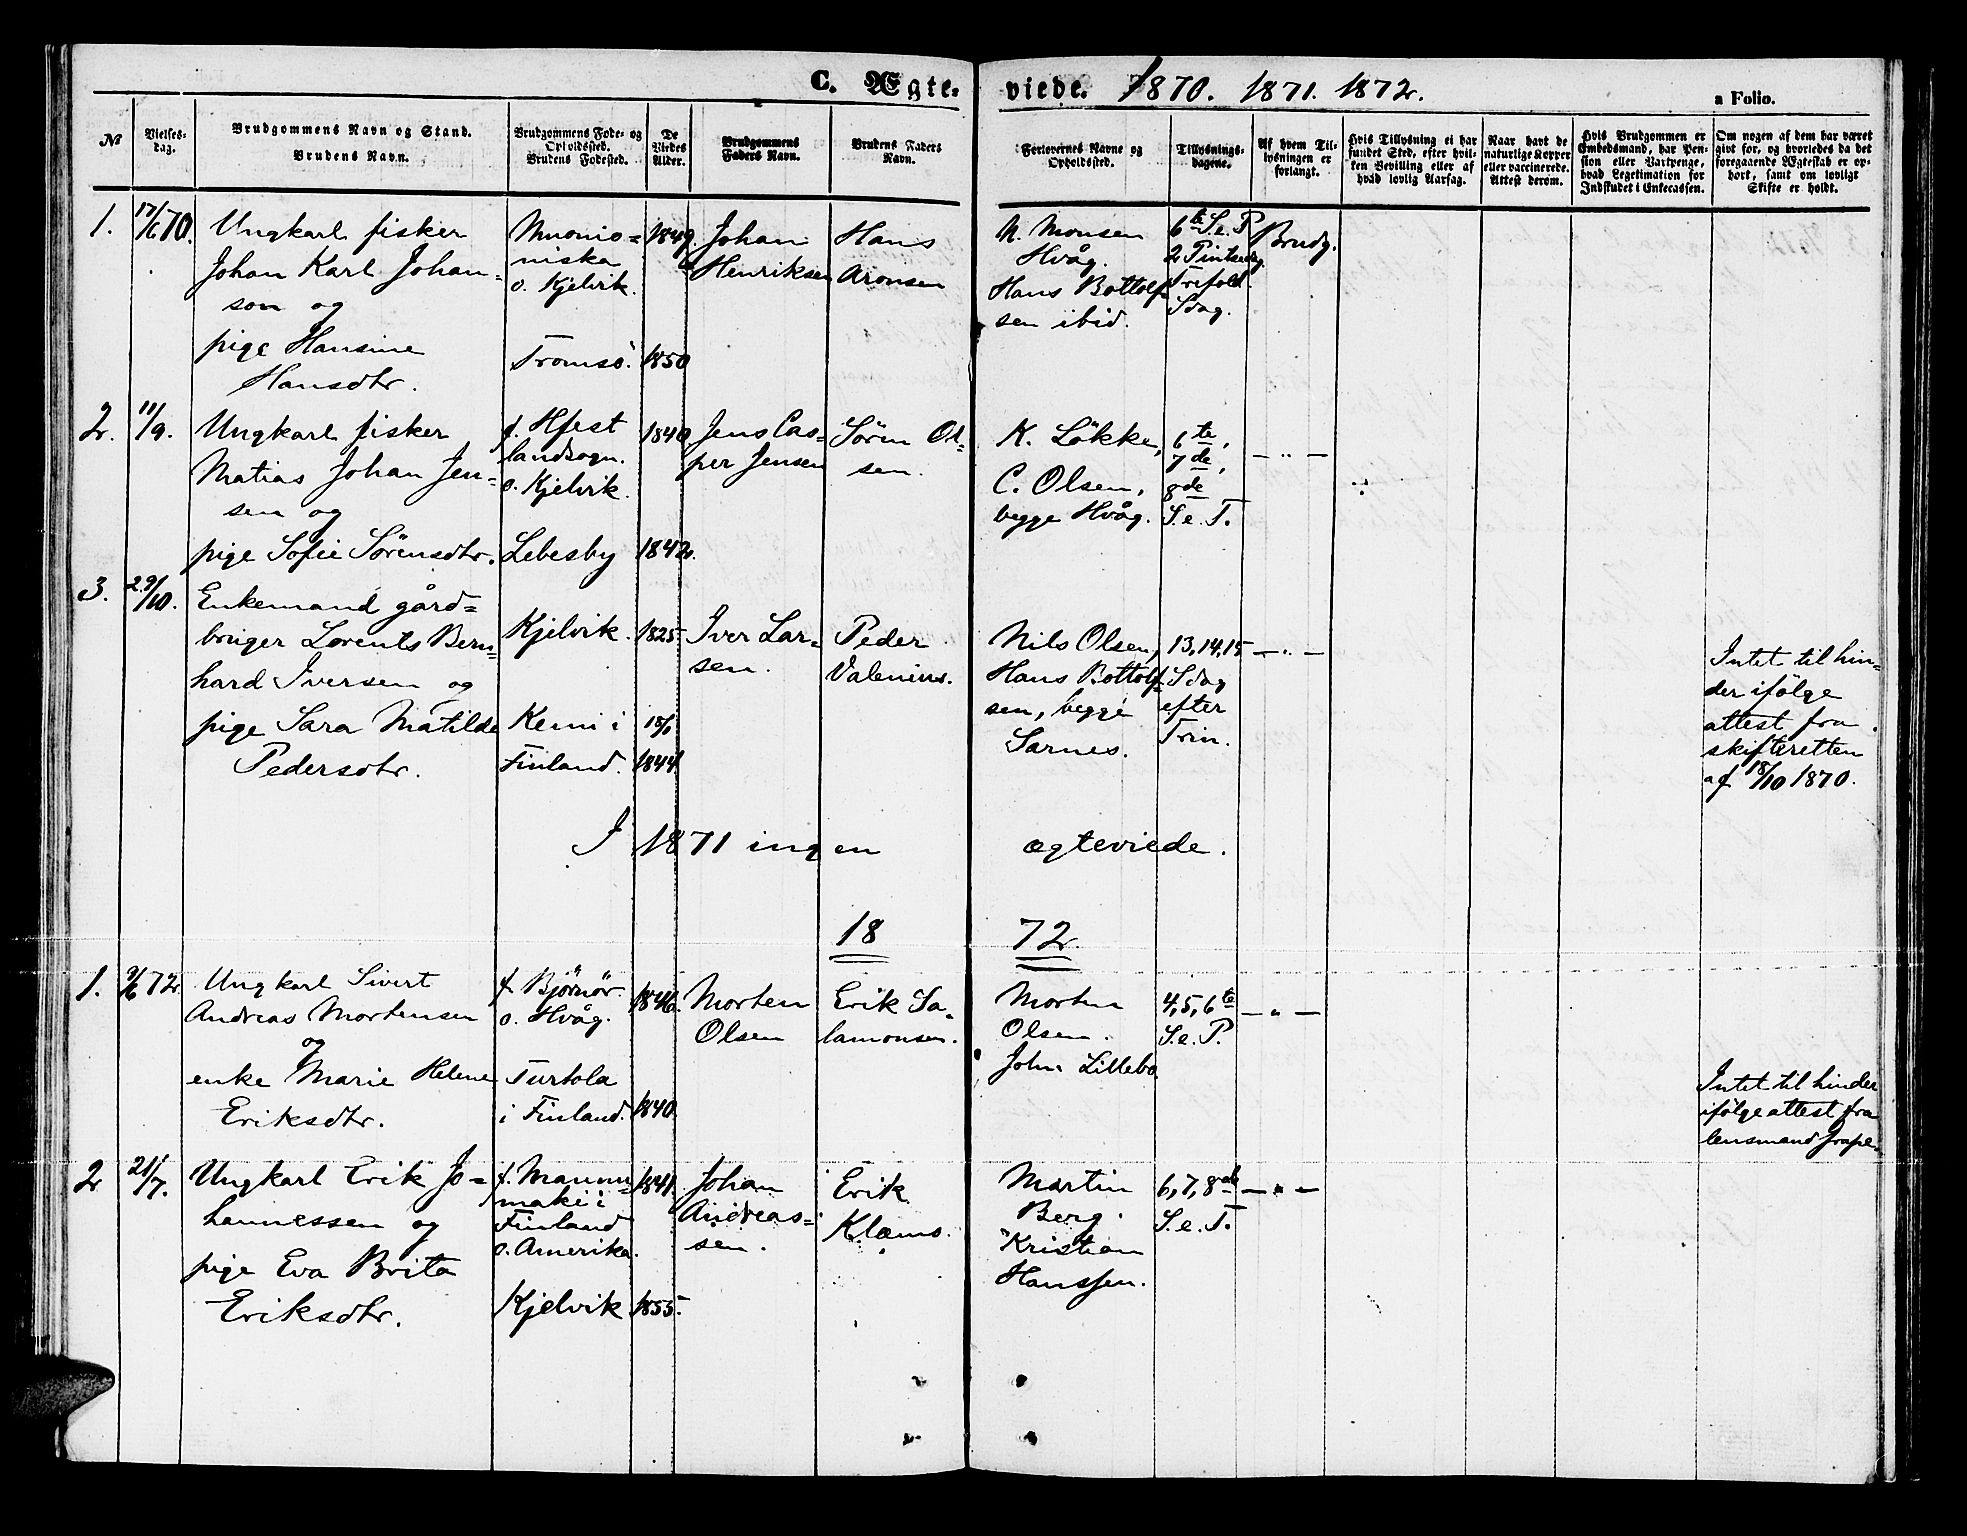 C. Ægte- viede. 1870. 1871. 1872. a Folio.
№
Vielses-
dag.
Brudgommens Navn og Stand.
Brudens Navn.
Brudgommens Føde- og
Opholdssted.
Brudens Fødested.
De
Viedes
Alder.
Brudgommens
Faders Navn.
Brudens Faders
Navn.
Forlovernes Navne og
Opholdssted.
Tillysnings-
dagene.
Af hvem Til-
lysningen er
forlangt.
Hvis Tillysning ei har
fundet Sted, efter hvil-
ken Bevilling eller af
hvad lovlig Aarsag.
Naar havt de
naturlige Kopper
eller vaccinerede.
Attest derom.
Hvis Brudgommen er
Embedsmand, har Pen-
sion eller Vartpenge,
hvad Legitimation for
Indskudet i Enkecassen.
Om nogen af dem har været
gift før, og hvorledes da det
foregaaende Ægteskab er op-
hørt, samt om lovligt
Skifte er holdt.
1.
17/6 70.
Ungkarl fisker
Johan Karl Johan=
son og
pige Hansine
Hansdtr.
Muonio=
niska
o. Kjelvik.
Tromsö.
1849.
1850
Johan
Henriksen
Hans
Aronsen
N. Monsen
Hvåg.
Hans Bottolf-
sen ibid.
6te S. e. P
2 Pintsedg.
Trefold.
Sdag.
Brudg.
2.
11/9.
Ungkarl fisker
Matias Johan Jen=
sen og
pige Sofie Sörensdtr.
f. Hfest
landsogn.
o. Kjelvik.
Lebesby
1840
1842.
Jens Cas=
per Jensen
Sören Ol=
sen.
K. Lökke,
C. Olsen,
begge Hvåg.
6te,
7de,
8de
S. e. T.
— „ —
3.
29/10.
Enkemand gård=
bruger Lorents Bern=
hard Iversen og
pige Sara Matilde
Pedersdtr.
Kjelvik.
Kemi i
Finland.
1825.
1844.
Iver Lar=
sen.
Peder
Valenius.
Nils Olsen,
Hans Bottolf=
sen, begge
Sarnes.
13, 14, 15
Sdag
efter
Trin.
— „ —
Intet til hin=
der ifölge
attest fra
skifteretten
af 18/10 1870.
I 1871 ingen ægteviede.
1872.
1.
9/6 72.
Ungkarl Sivert
Andreas Mortensen
og
enke Marie Helene
Eriksdtr.
f. Björnör.
o. Hvåg.
Turtola
i Finland.
1846.
1840.
Morten
Olsen
Erik Sa=
lamonsen.
Morten
Olsen.
John Lillebo.
4, 5, 6te
S. e. P.
— „ —
Intet til hinder
ifölge attest fra
lensmand Grape.
2.
21/7.
Ungkarl Erik Jo=
hannessen og
pige Eva Brita
Eriksdtr.
maki i
Finland
o. Amerika.
Kjelvik
1841.
1855.
Johan
Andreas=
sen.
Erik
Klæms.
Martin
Berg.
Kristian
Hanssen.
6, 7, 8de
S. e. T.
— „ —